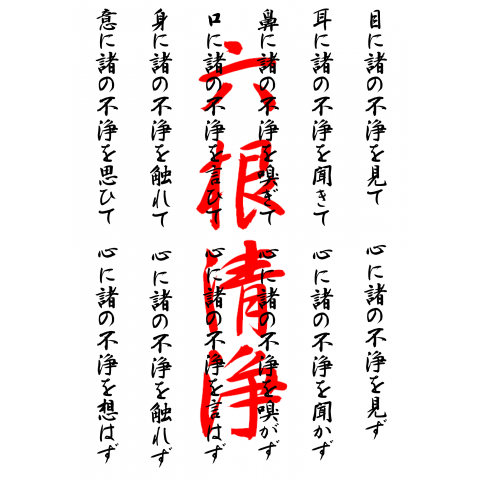 目に諸の不浄を見て
心に諸の不浄を見ず
耳に諸の不浄を聞きて
心に諸の不浄を聞かず
鼻に諸の不浄を嗅ぎて
心に諸の不浄を嗅がず
口に諸の不浄を言ひて
心に諸の不浄を言はず
身に諸の不浄を触れて
心に諸の不浄を触れず
意に諸の不浄を思ひて
心に諸の不浄を想はず
六根清浄